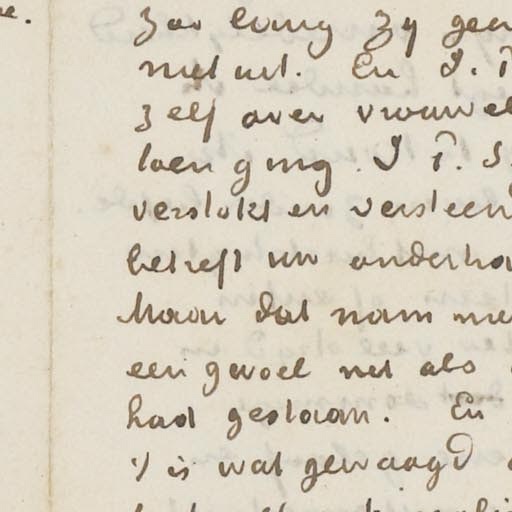 zoo lang zij geen
niet uit. En I. P.
zelf over vrouwel
toen ging. I P. S
verstokt en versteend
betreft uw onderho
Maar dat nam me
een gevoel net als
had gestaan. En
't is wat gewaagd